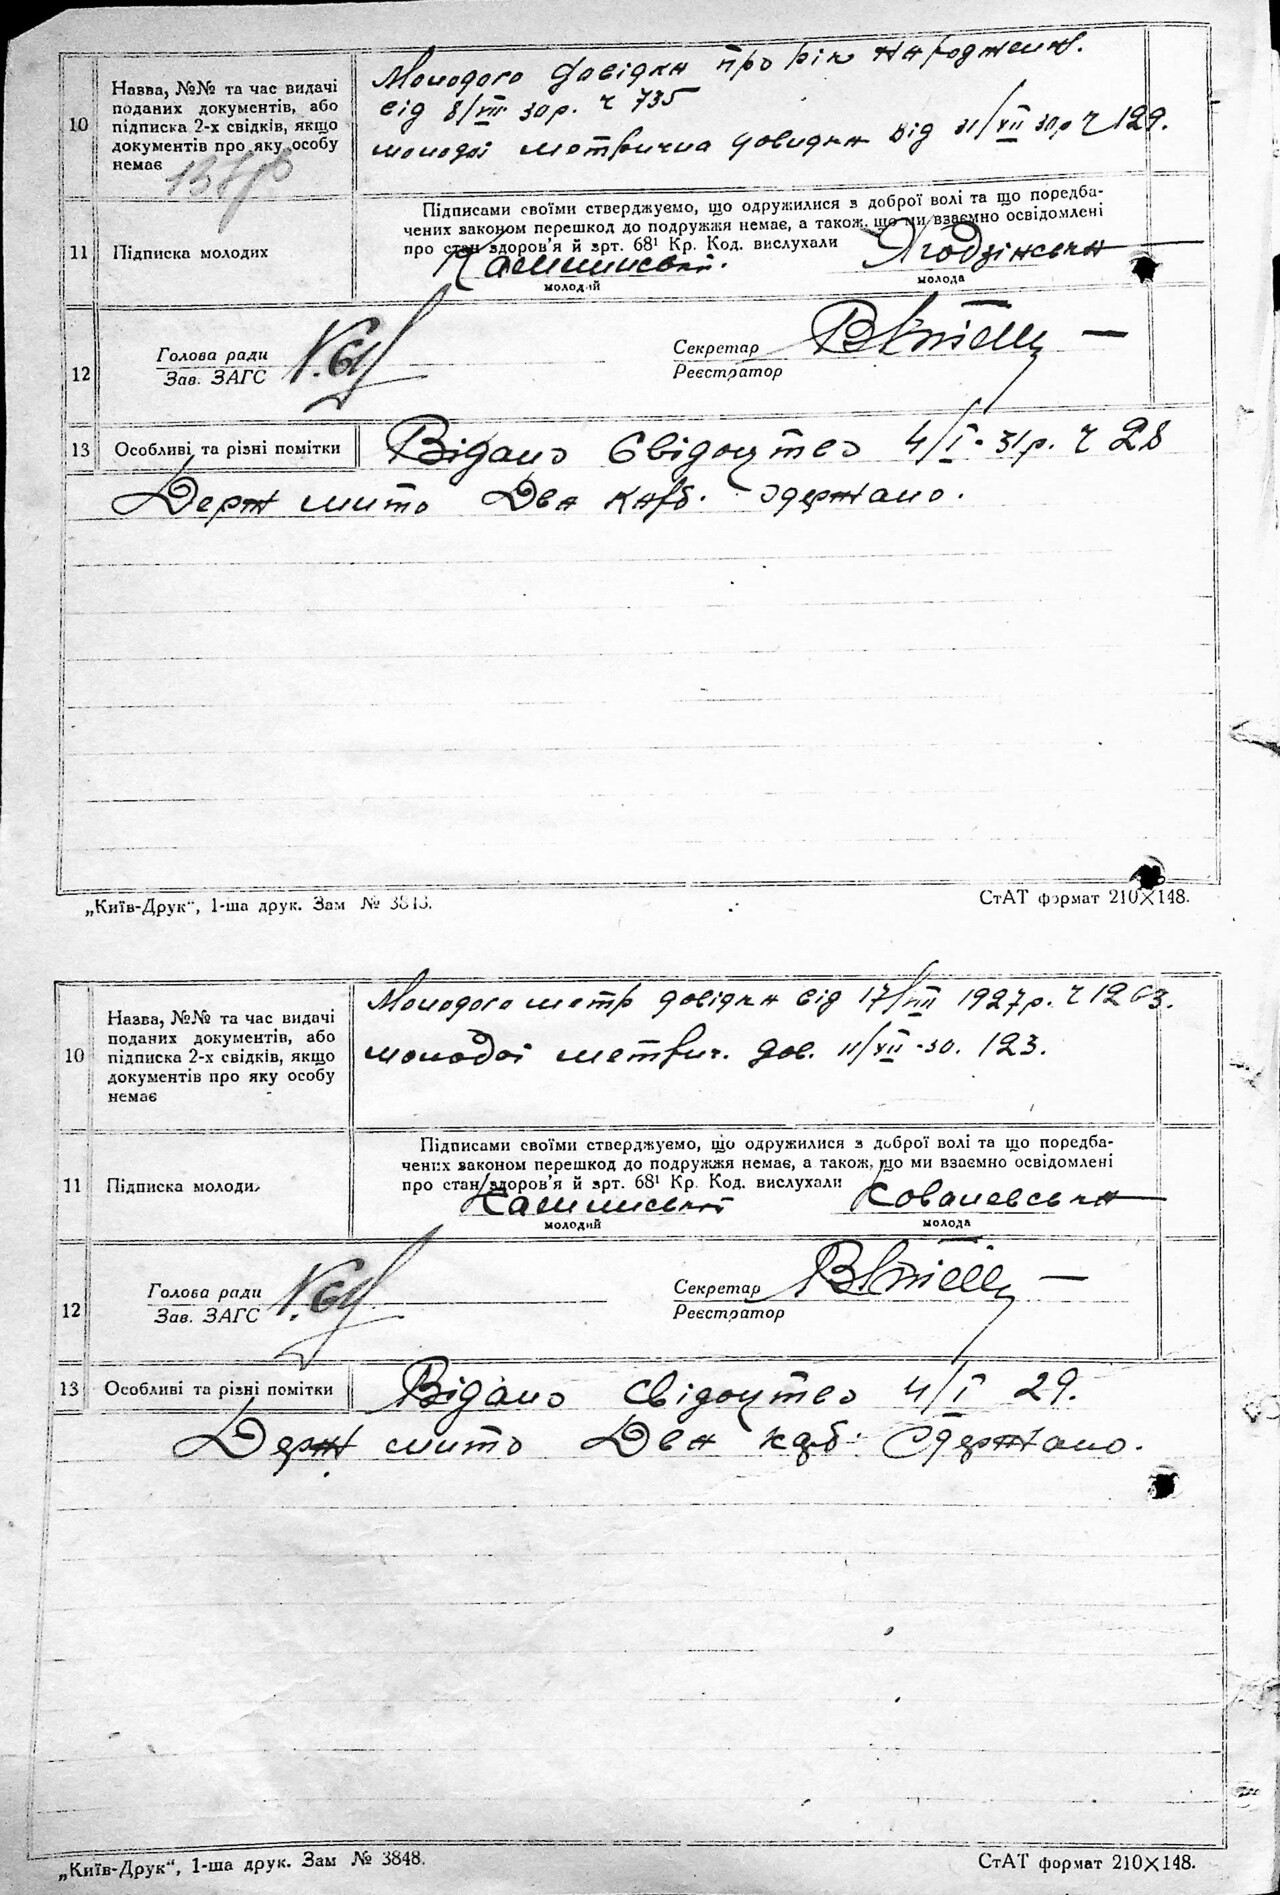 10
Назва, №№ та час видачі
поданих документів, або
підписка 2-х свідків, якщо
документів про яку особу
немає
Молодого довідка про рік народжен.
від 8/VIII 30р. ч 735
молодої метрична довидка від 11/XII 30р ч 129.
11
Підписка молодих
Підписами своїми стверджуємо, що одружилися з доброї волі та що поредба-
чених законом перешкод до подружжя немає, а також, що ми взаємно освідомлені
про стан здоров'я й зрт. 68¹ Кр. Код. вислухали
Калиннський. Ягодзінська
молодий молода
12
Голова ради
Зав. ЗАГС
Секретар
Реєстратор
13
Особливі та різні помітки
Відано Свідоцтво 4/I - 31р. ч 28
Держ мито Два карб. здержано.
„Київ-Друк“, 1-ша друк. Зам № 3843.
СтАТ формат 210×148.
10
Назва, №№ та час видачі
поданих документів, або
підписка 2-х свідків, якщо
документів про яку особу
немає
Молодого метр довідка від 17/VIII 1927р. ч 1203.
молодої метрич. дов. 11/XII - 30. 123.
11
Підписка молоди
Підписами своїми стверджуємо, що одружилися з доброї волі та що поредба-
чених законом перешкод до подружжя немає, а також, що ми взаємно освідомлені
про стан здоров'я й зрт. 68¹ Кр. Код. вислухали
Калинський Ковалевська
молодий молода
12
Голова ради
Зав. ЗАГС
Секретар
Реєстратор
13
Особливі та різні помітки
Відано Свідоцтво 4/I 29.
Держ мито Два карб. Сдержано.
„Київ-Друк“, 1-ша друк. Зам № 3848.
СтАТ формат 210×148.